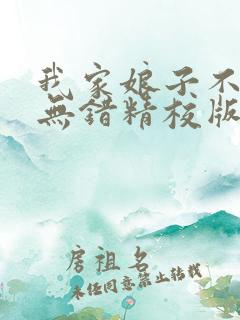 我家娘子不
無錯精校版
房祖名
未經同意禁止轉載